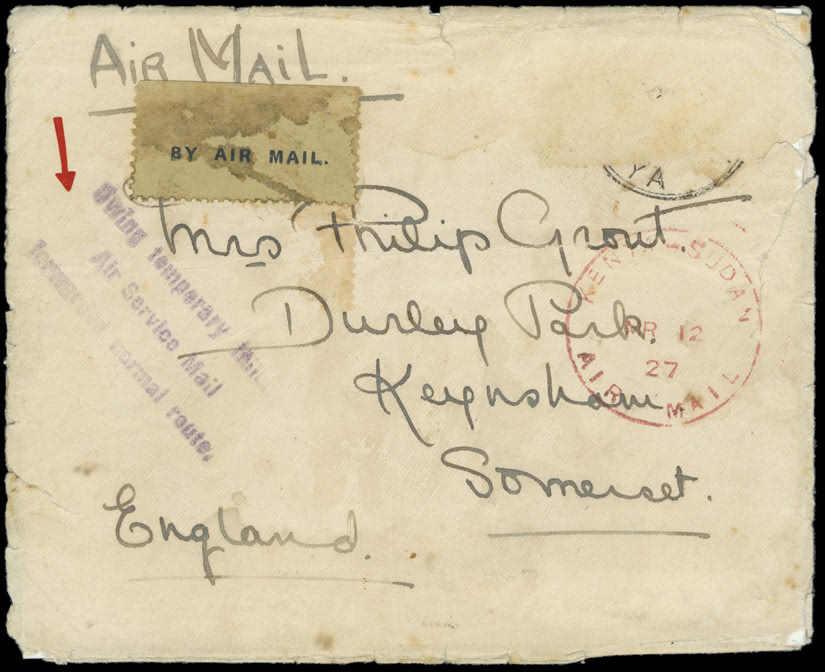 AIR MAIL.
BY AIR MAIL.
YA
Mrs Philip Grout.
Durley Park.
Keynsham
Somerset.
England.
Owing temporary
Air Service Mail
forwarded normal route.
KENYA-SUDAN
12
27
AIR MAIL